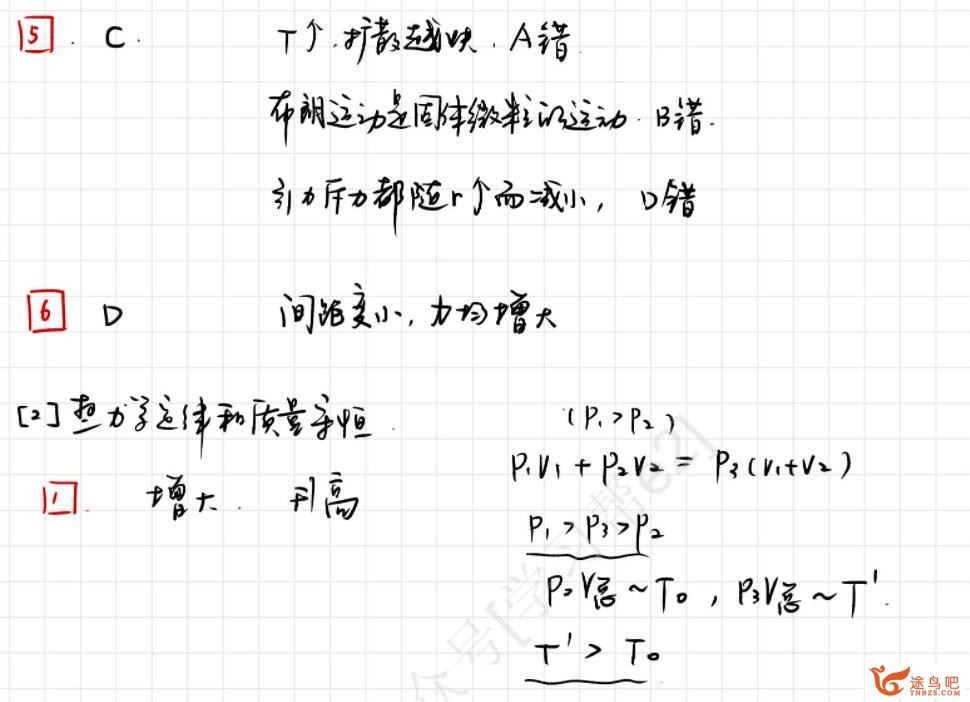 5. C. T↑.扩散越快.A错.
布朗运动是固体微粒的运动.B错.
引力斥力都随r↑而减小, D错
6 D 间距变小,力均增大
[2]热力学定律和质量守恒.
(P₁>P₂)
P₁V₁+P₂V₂=P₃(V₁+V₂)
1. 增大. 升高
P₁>P₃>P₂
P₂V总~T₀,P₃V总~T'.
T'>T₀
公众号[学习帮62]
途鸟吧
TNBZS.COM